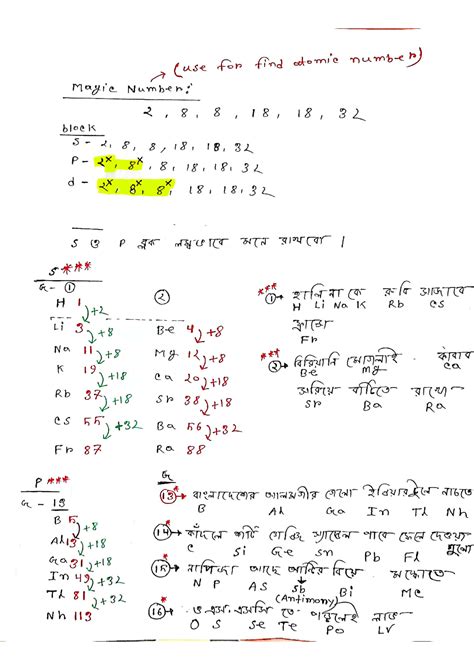 (use for find atomic number)
Magic Number:
2, 8, 8, 18, 18, 32
block
S - 2, 8, 8, 18, 18, 32
P - 2x, 8x, 8, 18, 18, 32
d - 2x, 8x, 8x, 18, 18, 32
S ও P ব্লক লম্বভাবে মনে রাখবো।
S ***
G - ①
②
H 1
+2
Li 3
+8
Na 11
+8
K 19
+18
Rb 37
+18
Cs 55
+32
Fr 87
Be 4
+8
Mg 12
+8
Ca 20
+18
Sr 38
+18
Ba 56
+32
Ra 88
*** ①→ হালি না কে রুবি সাজাবে
H Li Na K Rb Cs
ফ্রান্সে
Fr
*** ②→ বিরিয়ানি মোগলাই কাবাব
Be Mg
সরিয়ে বাটিতে রাখো
Sr Ba Ra
P ***
G - 13
B 5
+8
Al 13
+18
Ga 31
+18
In 49
+32
Tl 81
+32
Nh 113
G
* ⑬→ বাংলাদেশের আলমগীর গেলো ইন্ডিয়ার নাচতে
B Al Ga In Tl Nh
* ⑭→ কাঁদলে পাবে ফেলে দেওয়া
C Si Ge Sn Pb Fl
মুলো
* ⑮→ নাপিজা আছে আন্টির বিয়ে মস্কোতে
N P AS Sb Bi Mc
(Antimony)
* ⑯→ ও.এস.এসসি তে লাভ
O S Se Te Po LV